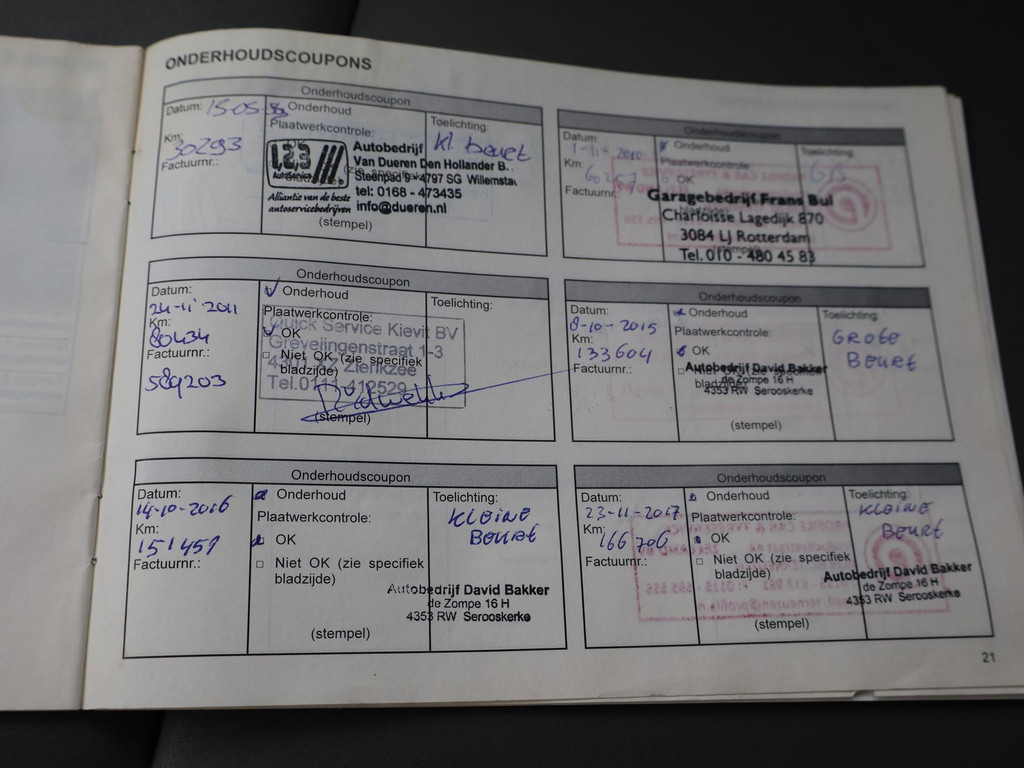 ONDERHOUDSCOUPONS
Onderhoudscoupon
Datum: 15-05-
Onderhoud
Km: 30293
Plaatwerkcontrole:
Factuurnr.:
Toelichting:
Kl beurt
1,2,3
AutoService
Alliantie van de beste
autoservicebedrijven
Autobedrijf
Van Dueren Den Hollander B.
Steenpad 9 - 4797 SG Willemsta
tel: 0168 - 473435
info@dueren.nl
(stempel)
Onderhoudscoupon
Datum:
1-11-2010
Km:
60257
Factuurnr.:
Onderhoud
Plaatwerkcontrole
OK
Toelichting:
GB
Garagebedrijf Frans Bul
Charloisse Lagedijk 870
3084 LJ Rotterdam
Tel. 010 - 480 45 83
Onderhoudscoupon
Datum:
24-11-2011
Km:
80434
Factuurnr.:
589203
Onderhoud
Plaatwerkcontrole:
OK
Niet OK (zie specifiek
bladzijde)
Toelichting:
Quick Service Kievit BV
Grevelingenstraat 1-3
Zierikzee
(stempel)
Onderhoudscoupon
Datum:
8-10-2015
Km:
133604
Factuurnr.:
Onderhoud
Plaatwerkcontrole:
OK
Toelichting:
GROTE
BEURT
Autobedrijf David Bakker
de Zompe 16 H
4353 RW Serooskerke
(stempel)
Onderhoudscoupon
Datum:
14-10-2016
Km:
151457
Factuurnr.:
Onderhoud
Plaatwerkcontrole:
OK
Niet OK (zie specifiek
bladzijde)
Toelichting:
KLEINE
BEURT
Autobedrijf David Bakker
de Zompe 16 H
4353 RW Serooskerke
(stempel)
Onderhoudscoupon
Datum:
23-11-2017
Km:
166706
Factuurnr.:
Onderhoud
Plaatwerkcontrole:
OK
Niet OK (zie specifiek
bladzijde)
Toelichting:
KLEINE
BEURT
Autobedrijf David Bakker
de Zompe 16 H
4353 RW Serooskerke
(stempel)
21